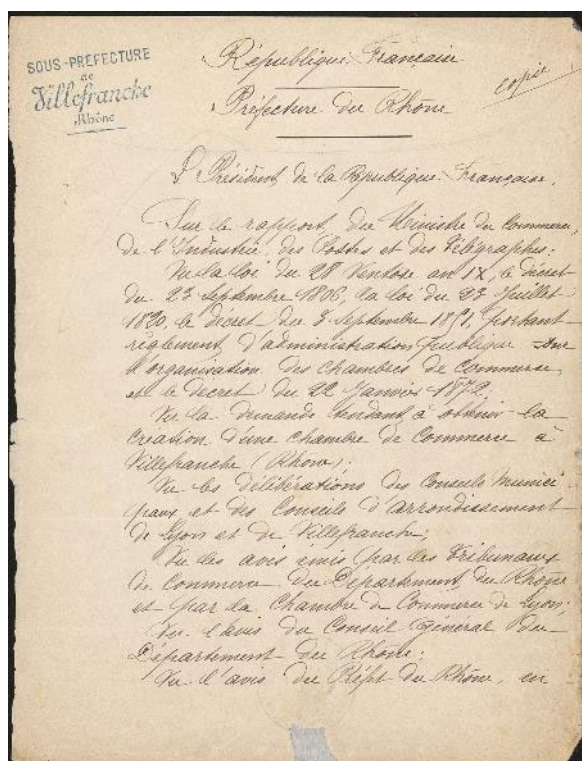 SOUS-PRÉFECTURE
de
Villefranche
Rhône
République Française
copie
Préfecture du Rhône
Le Président de la République Française,
Sur le rapport du Ministre du Commerce,
de l'Industrie, des Postes et des Télégraphes;
Vu la loi du 28 Ventose an IX, le décret
du 23 septembre 1806, la loi du 23 Juillet
1820, le décret du 3 septembre 1851, portant
règlement d'administration publique sur
l'organisation des chambres de Commerce,
et le décret du 22 Janvier 1872,
Vu la demande tendant à obtenir la
création d'une chambre de Commerce à
Villefranche (Rhône);
Vu les délibérations des Conseils Munici-
paux et des Conseils d'arrondissement
de Lyon et de Villefranche;
Vu les avis émis par les Tribunaux
de Commerce du Département du Rhône
et par la Chambre de Commerce de Lyon;
Vu l'avis du Conseil Général du
Département du Rhône;
Vu l'avis du Préfet du Rhône, en